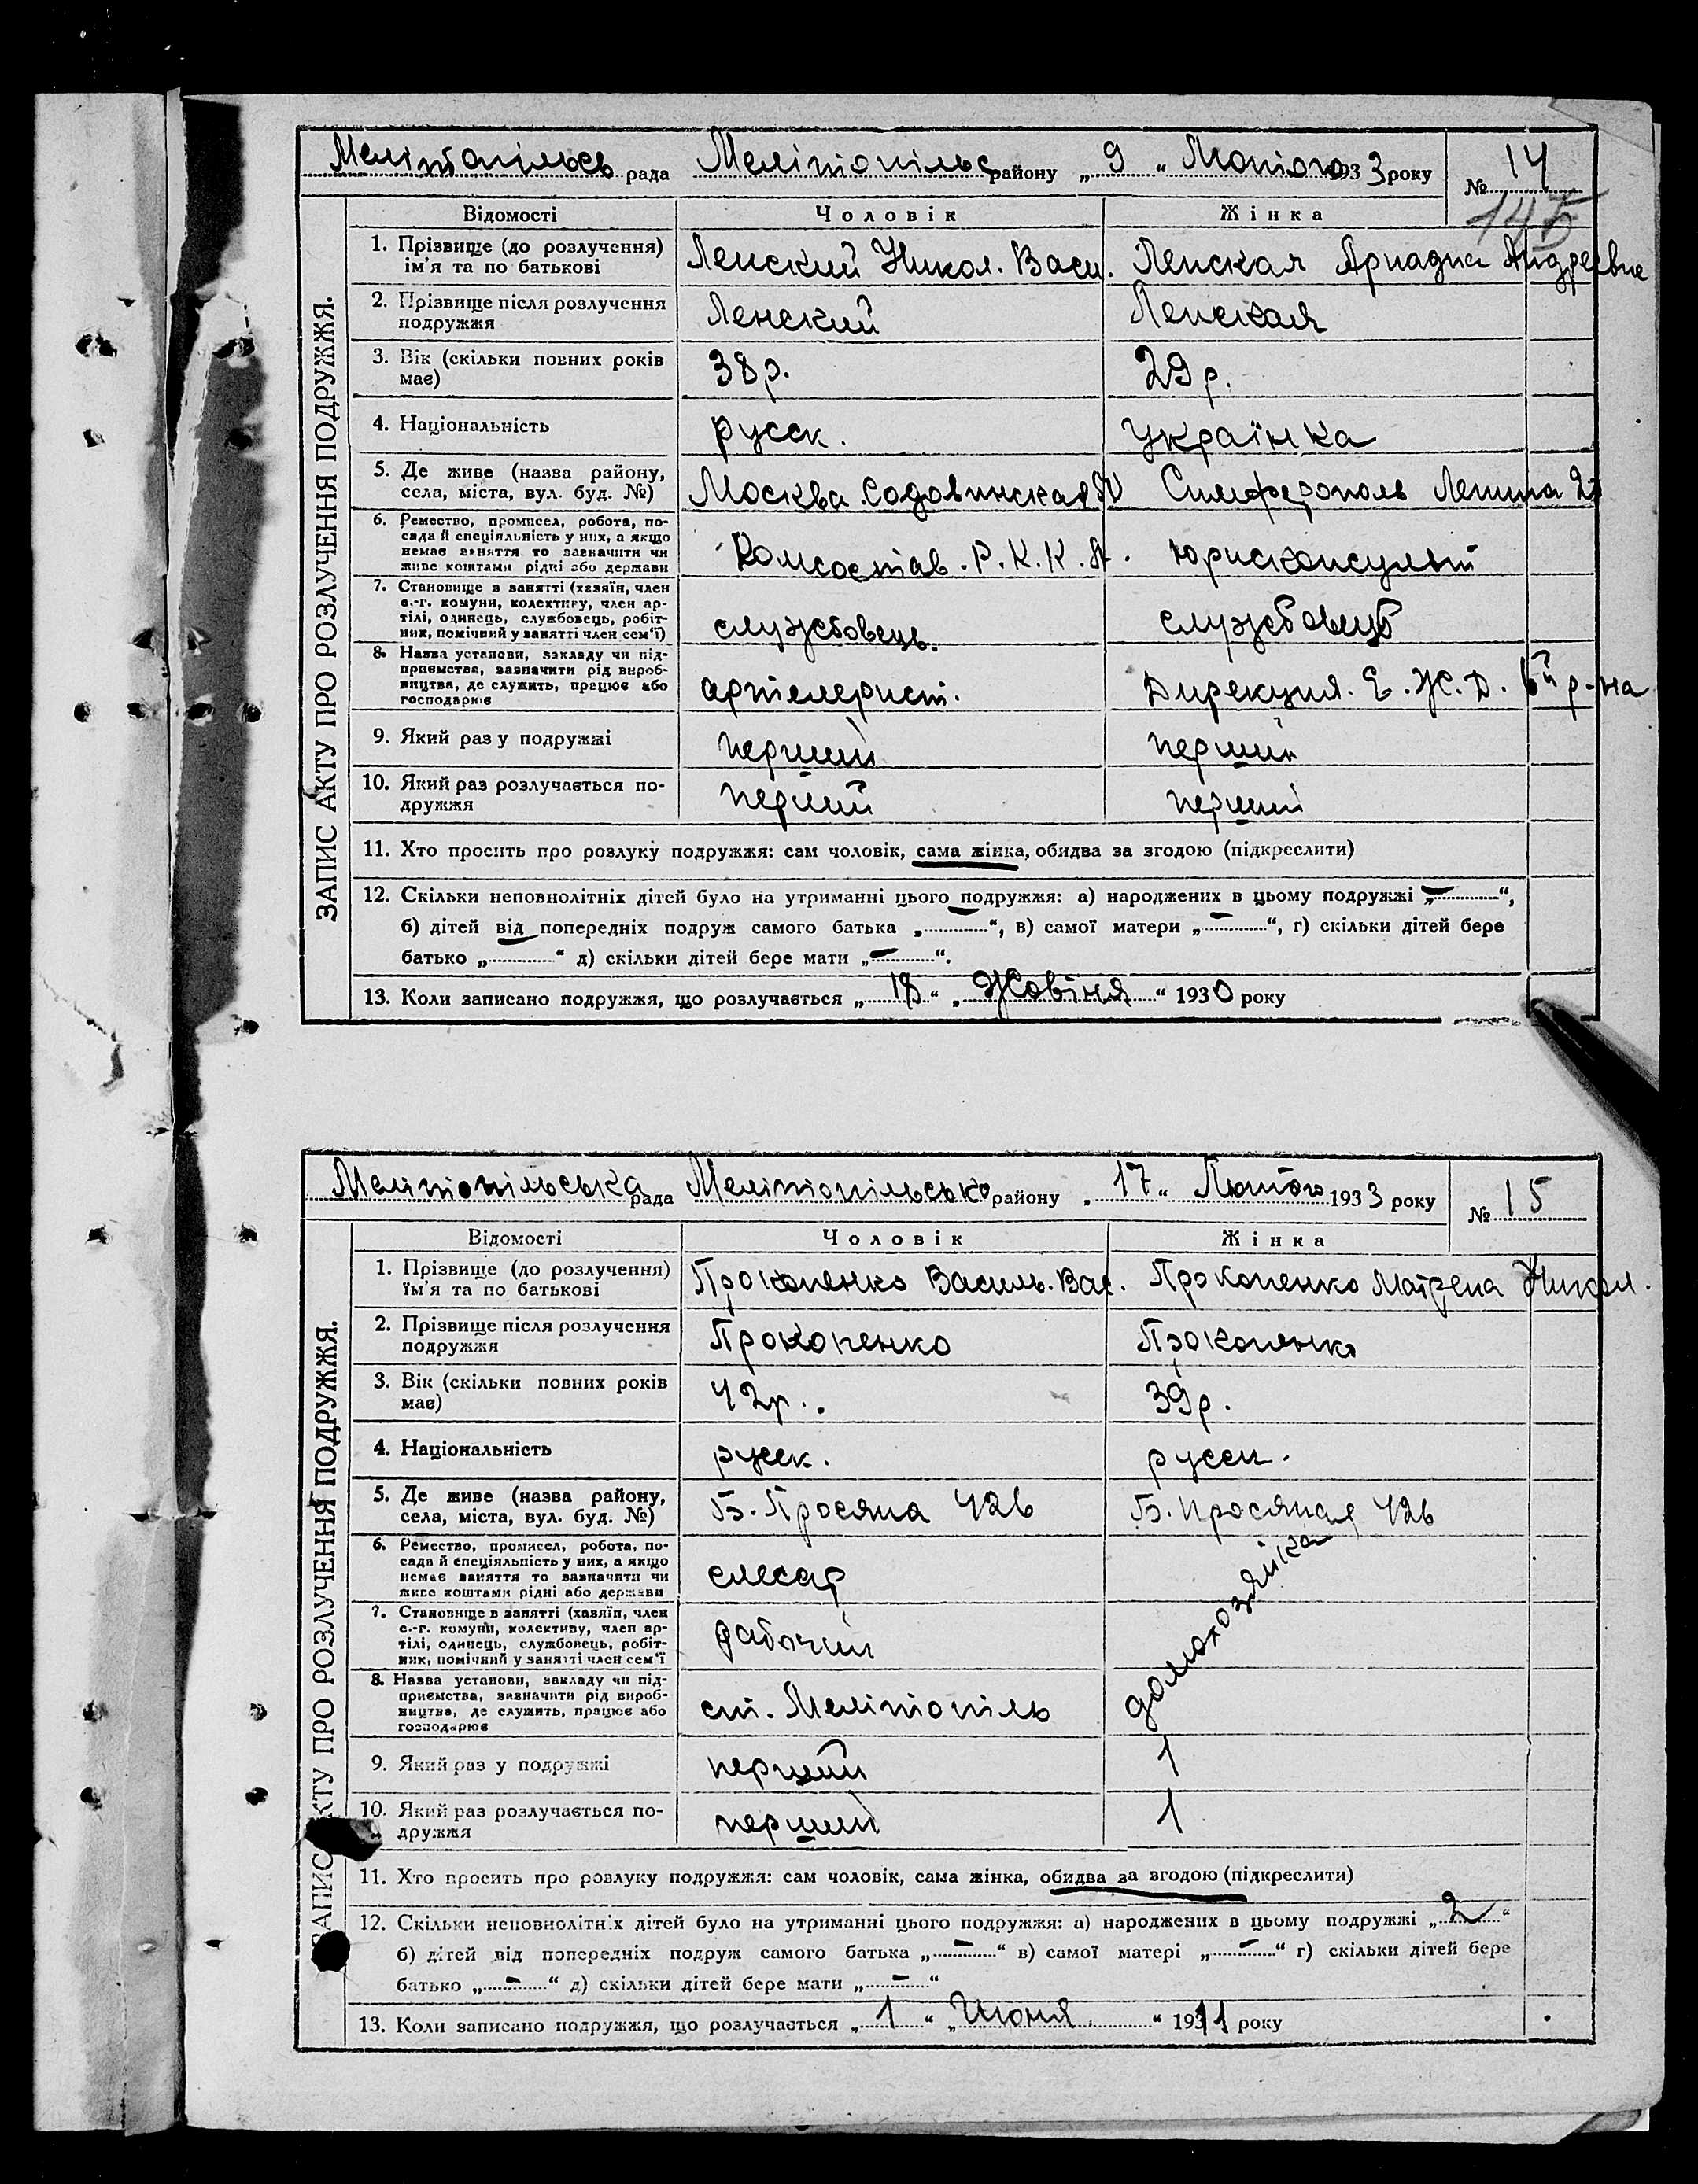 Мелітопільсь рада Мелітопільс району „ 9 “ Лютого 1933 року № 14
145
ЗАПИС АКТУ ПРО РОЗЛУЧЕННЯ ПОДРУЖЖЯ.
Відомості Чоловік Жінка
1. Прізвище (до розлучення) ім'я та по батькові Ленский Никол. Васи. Ленская Ариадна Андреевна
2. Прізвище після розлучення подружжя Ленский Ленская
3. Вік (скільки повних років має) 38 р. 29 р.
4. Національність русск. українка
5. Де живе (назва району, села, міста, вул. буд. №) Москва Симферополь Ленина
6. Ремество, промисел, робота, посада й спеціяльність у них, а якщо немає заняття то зазначити чи живе коштами рідні або держави Комсостав. Р.К.К.А. юрисконсульт
7. Становище в занятті (хазяїн, член с.-г. комуни, колективу, член артілі, одинець, службовець, робітник, помічний у занятті член сем'ї) службовець. службовець
8. Назва установи, закладу чи підприємства, зазначити рід виробництва, де служить, працює або господарює артелерист. Дирекция. Е.Ж.Д. р-на
9. Який раз у подружжі перший перший
10. Який раз розлучається подружжя перший перший
11. Хто просить про розлуку подружжя: сам чоловік, сама жінка, обидва за згодою (підкреслити)
12. Скільки неповнолітніх дітей було на утриманні цього подружжя: а) народжених в цьому подружжі „ — “,
б) дітей від попередніх подруж самого батька „ “, в) самої матери „ — “, г) скільки дітей бере
батько „ “ д) скільки дітей бере мати „ — “.
13. Коли записано подружжя, що розлучається „ 18 “ „ Жовтня “ 1930 року
Мелітопільська рада Мелітопільсько району „ 17 “ Лютого 1933 року № 15
ЗАПИС АКТУ ПРО РОЗЛУЧЕННЯ ПОДРУЖЖЯ.
Відомості Чоловік Жінка
1. Прізвище (до розлучення) їм'я та по батькові Прокопенко Василь. Вас. Прокопенко Матрена Никол.
2. Прізвище після розлучення подружжя Прокопенко Прокопенко
3. Вік (скільки повних років має) 42 р. 39 р.
4. Національність русск. русск.
5. Де живе (назва району, села, міста, вул. буд. №) Б. Просяна 42б Б. Просяная 42б
6. Ремество, промисел, робота, посада й спеціяльність у них, а якщо немає заняття то зазначити чи живе коштами рідні або держави слесар домохозяйка
7. Становище в занятті (хазяїн, член с.-г. комуни, колективу, член артілі, одинець, службовець, робітник, помічний у занятті член сем'ї рабочий
8. Назва установи, закладу чи підприємства, зазначити рід виробництва, де служить, працює або господарює ст. Мелітопіль
9. Який раз у подружжі перший 1
10. Який раз розлучається подружжя перший 1
11. Хто просить про розлуку подружжя: сам чоловік, сама жінка, обидва за згодою (підкреслити)
12. Скільки неповнолітніх дітей було на утриманні цього подружжя: а) народжених в цьому подружжі „ 2 “
б) дітей від попередніх подруж самого батька „ — “ в) самої матері „ — “ г) скільки дітей бере
батько „ — “ д) скільки дітей бере мати „ — “
13. Коли записано подружжя, що розлучається „ 1 “ „ Июня “ 1911 року